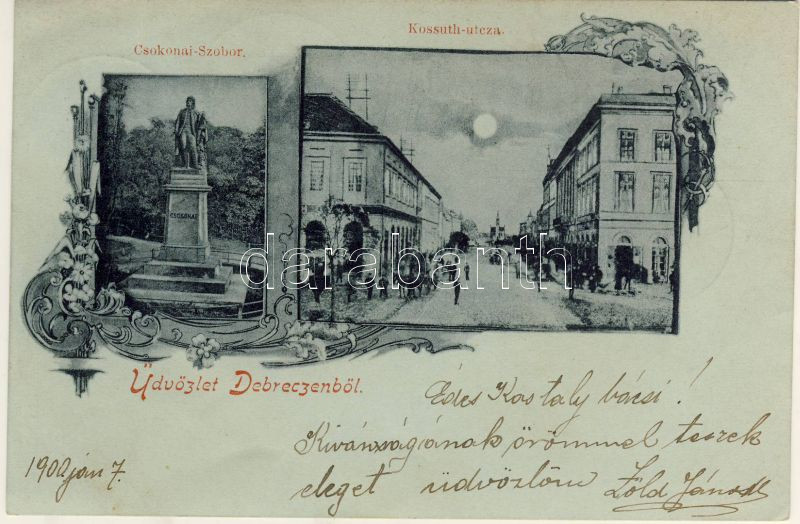 Csokonai-Szobor.
Kossuth-utcza.
CSOKONAI
darabanth
Üdvözlet Debreczenből.
Édes Kastaly bácsi!
Kivánságának örömmel teszek
eleget üdvözlöm Zöld János
1900 ján 7.